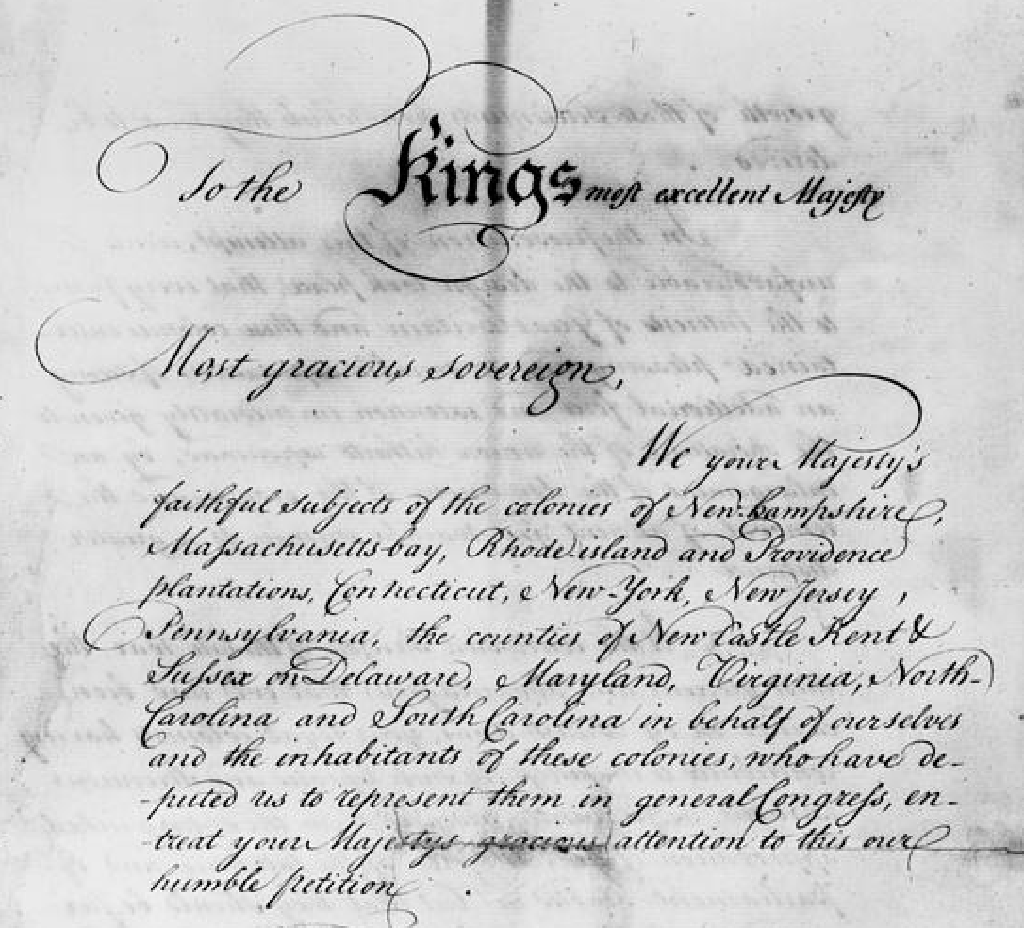 To the Kings most excellent Majesty
Most gracious sovereign,
We your Majesty's
faithful subjects of the colonies of New-hampshire,
Massachusetts-bay, Rhode island and Providence
plantations, Connecticut, New-York, New Jersey,
Pennsylvania, the counties of New Castle Kent &
Sussex on Delaware, Maryland, Virginia, North-
Carolina and South Carolina in behalf of ourselves
and the inhabitants of these colonies, who have de-
-puted us to represent them in general Congress, en-
-treat your Majestys gracious attention to this our
humble petition.